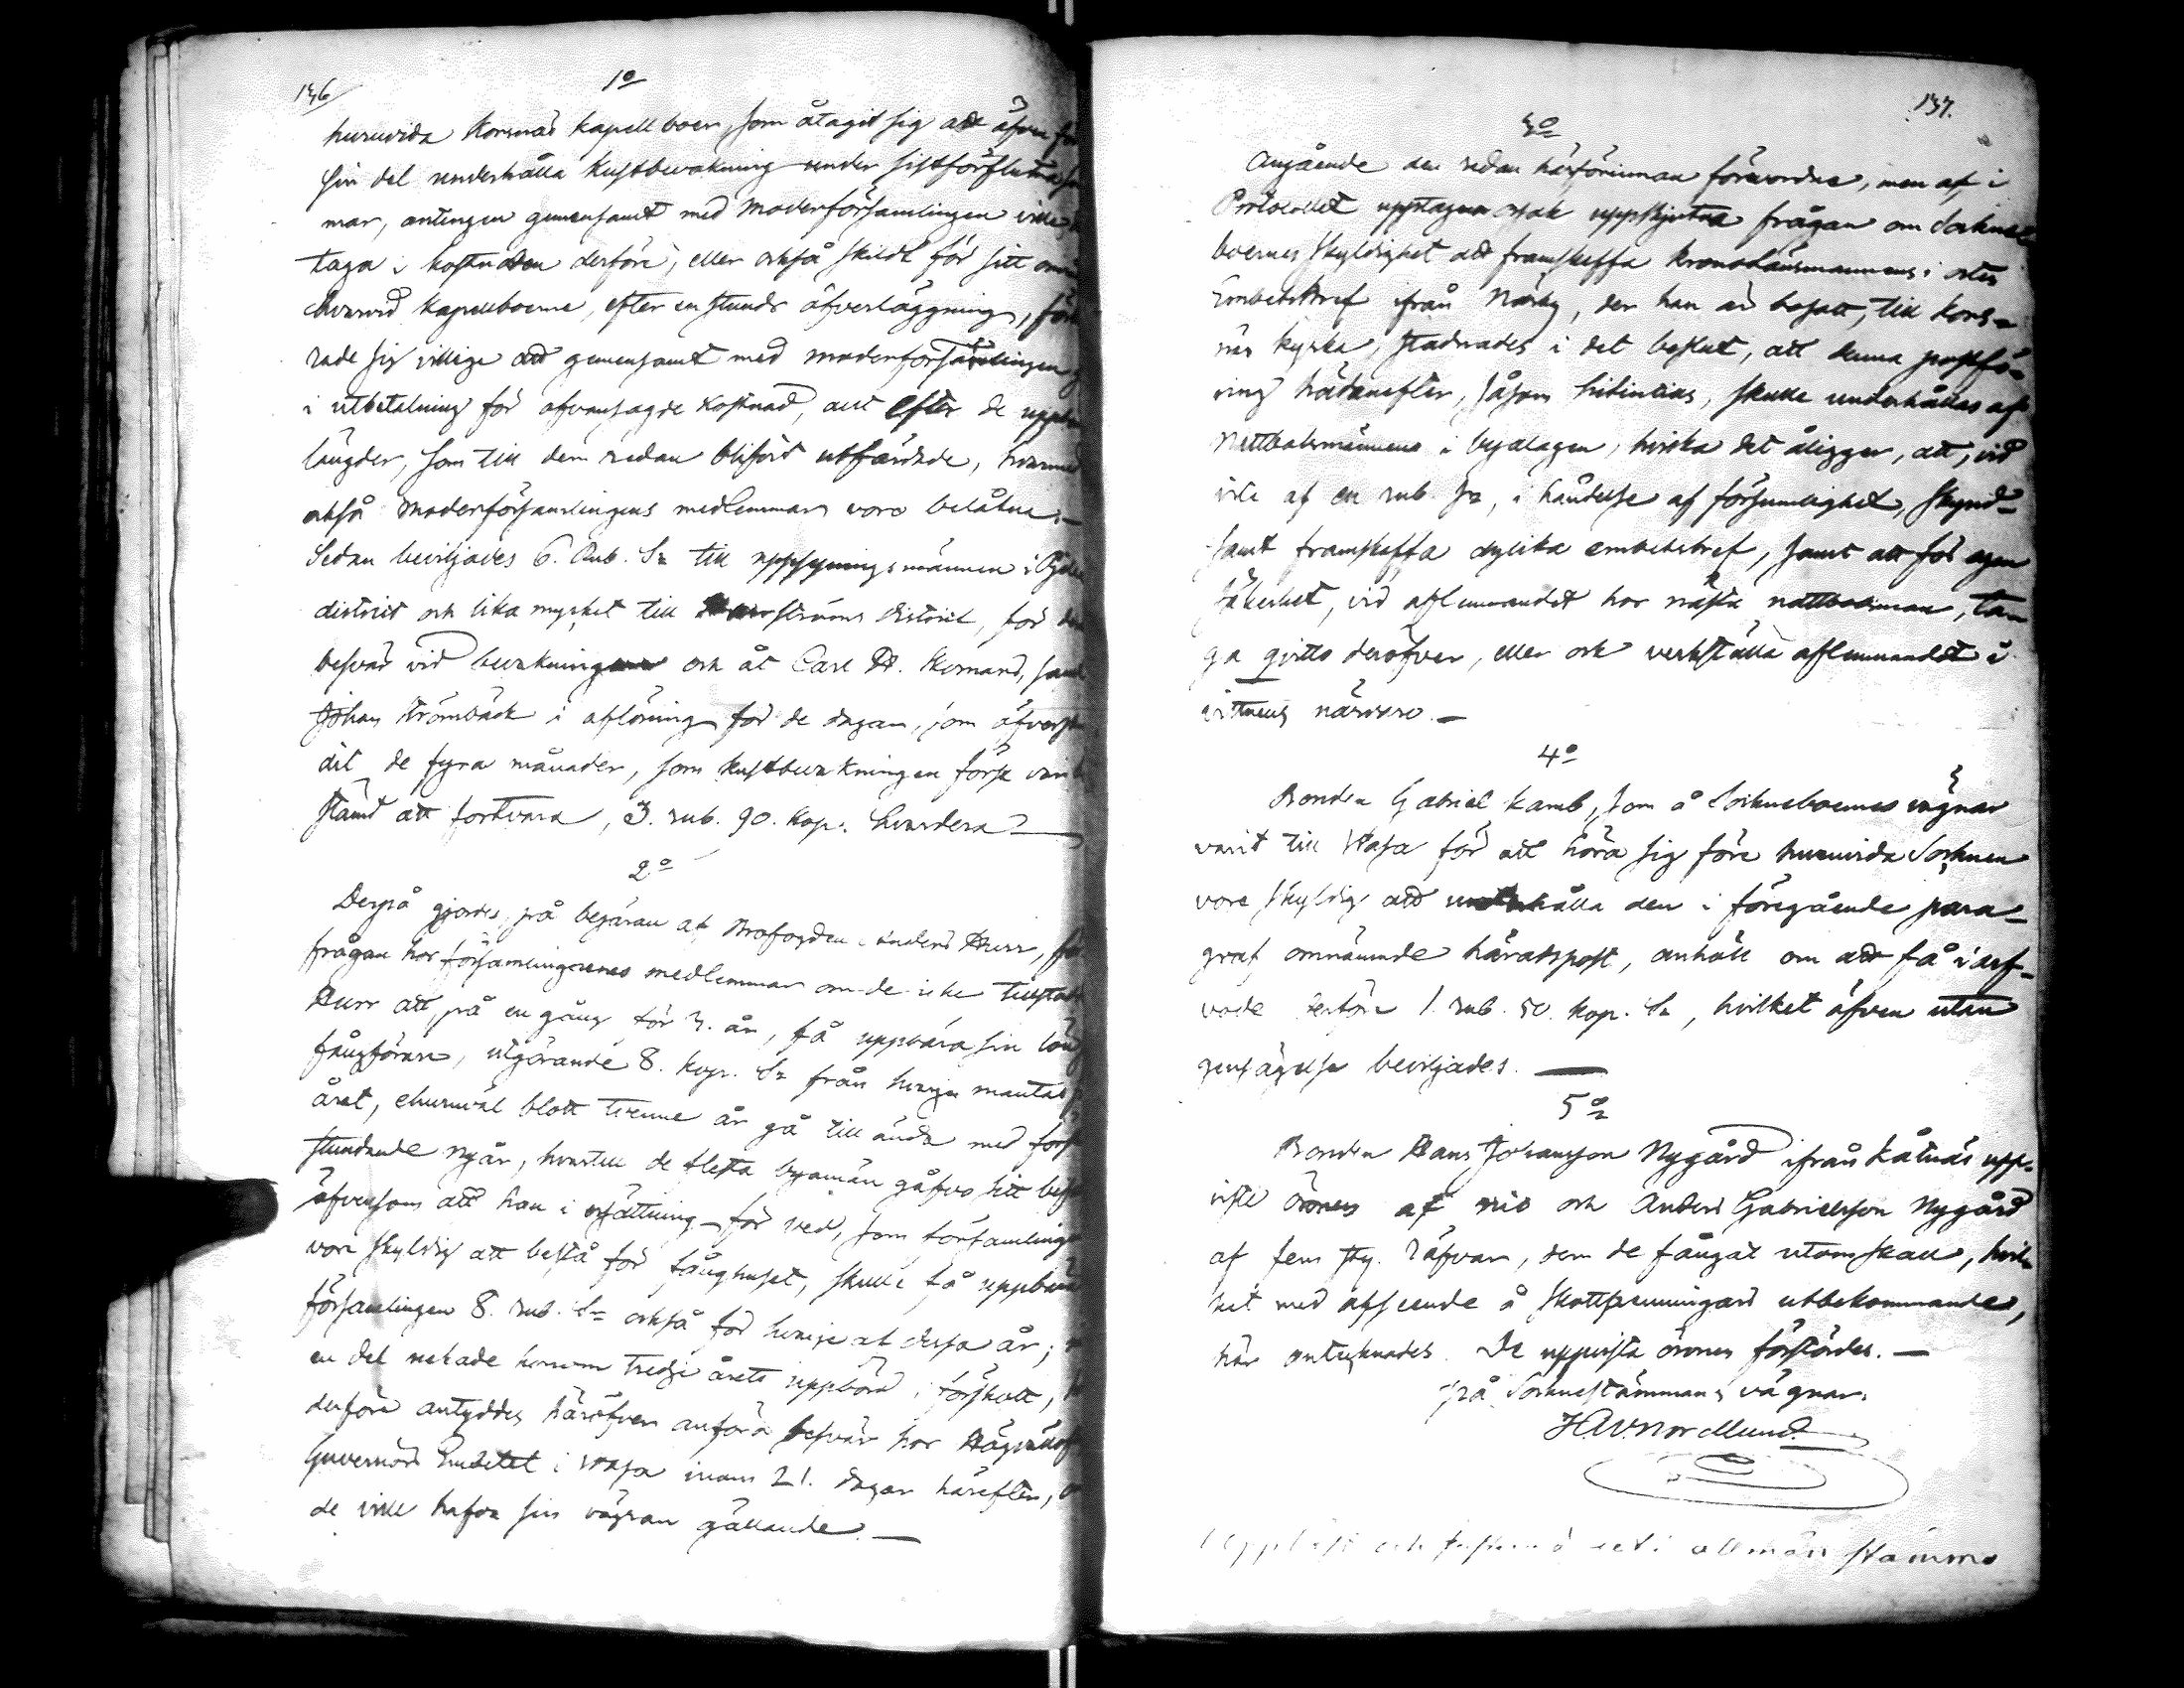 136/
1º
huruvida Korsnäs kapellboer, som åtagit sig att äfven för
sin del underhålla kustbevakning under sistförflutna som
mar, antingen gemensamt med moderförsamlingen ville
taga i kostnaden derföre, eller också skildt för sitt områ
hvarvid kapellboerne, efter en stunds öfverläggning, förkla
rade sig villige att gemensamt med moderförsamlingen
i utbetalning för ofvansagde kostnad, allt efter de uppbörds
längder, som till dem redan blifvit utfärdade, hvarmed
också moderförsamlingens medlemmar voro belåtne. –
Sedan beviljades 6. Rub. Sr till uppsyningsmännen i
district och lika mycket till ströms district, för
besvär vid bevakningen och åt Carl H. samt
Johan Strömbäck i aflöning för de dagar, som öfver
dit de fyra månader, som kustbevakningen först varit be
stämd att fortvara, 3. rub. 90. kop. hvardera. –
2º
Derpå gjordes, på begäran af Profossen Anders Hurr,
frågan hos församlingarnes medlemmar om de icke
Hurr att, på en gång för 3. år, få uppbära sin lön
fångförare, utgörande 8. kop. Sr från hvarje mantal
året, ehuruväl blott tvenne år gå till ända med först
stundande nyår, hvartill de flesta byamän gåfvo sitt bifall
äfvensom att han i ersättning för ved, som församlingen
vore skyldig att bestå för fånghuset, skulle få uppbära
församlingen 8. rub. Sr också för hvarje af dessa år;
en del nekade honom tredje årets uppbörd i förskott,
derföre antyddes häröfver anföra besvär hos Högvällofl.
Guvernörs Embetet i Wasa inom 21. dagar härefter,
de ville hafva sin vägran gällande. –
137.
3º
Angående den redan härförinnan förevordne, men af i
Protocollet upptagen orsak uppskjutna frågan om Sockne
boernes skyldighet att framskaffa Kronolänsmannens i orten
Embetsbref ifrån Närby, der han är bosatt, till Kors-
näs kyrka, stadnades i det beslut, att denna postfö-
ring hädanefter, såsom hitintills, skulle underhållas af
Nattbolsmännene i byalagen, hvilka det åligger, att, vid
vite af en rub. Sr, i händelse af försumlighet, skynd-
samt framskaffa dylika embetsbref, samt att för egen
säkerhet, vid aflemnandet hos nästa nattbolsman, ta
ga qvitto deröfver, eller ock verkställa aflemnandet i
vittnens närvaro. –
4º
Bonden Gabriel Kamb, som å Sockneboernes vägnar
varit till Wasa för att höra sig före huruvida Socknen
vore skyldig att underhålla den i föregående para-
graf omnämnde häradspost, anhöll om att få i arf-
vode derföre 1. rub. 50. kop. Sr, hvilket äfven utan
gensägelse beviljades. –
5º
Bonden Hans Johansson Nygård ifrån Kålnäs upp-
viste öronen af nio och Anders Gabrielsson Nygård
af fem sty. räfvar, dem de fångat utom skall, hvil-
ket med afseende å skottpenningars utbekommande,
här antecknades. De uppvista öronen förstördes. –
på Sockne stämmans vägnar.
H.W. Nordlund.
Uppläst och i allmän stämma